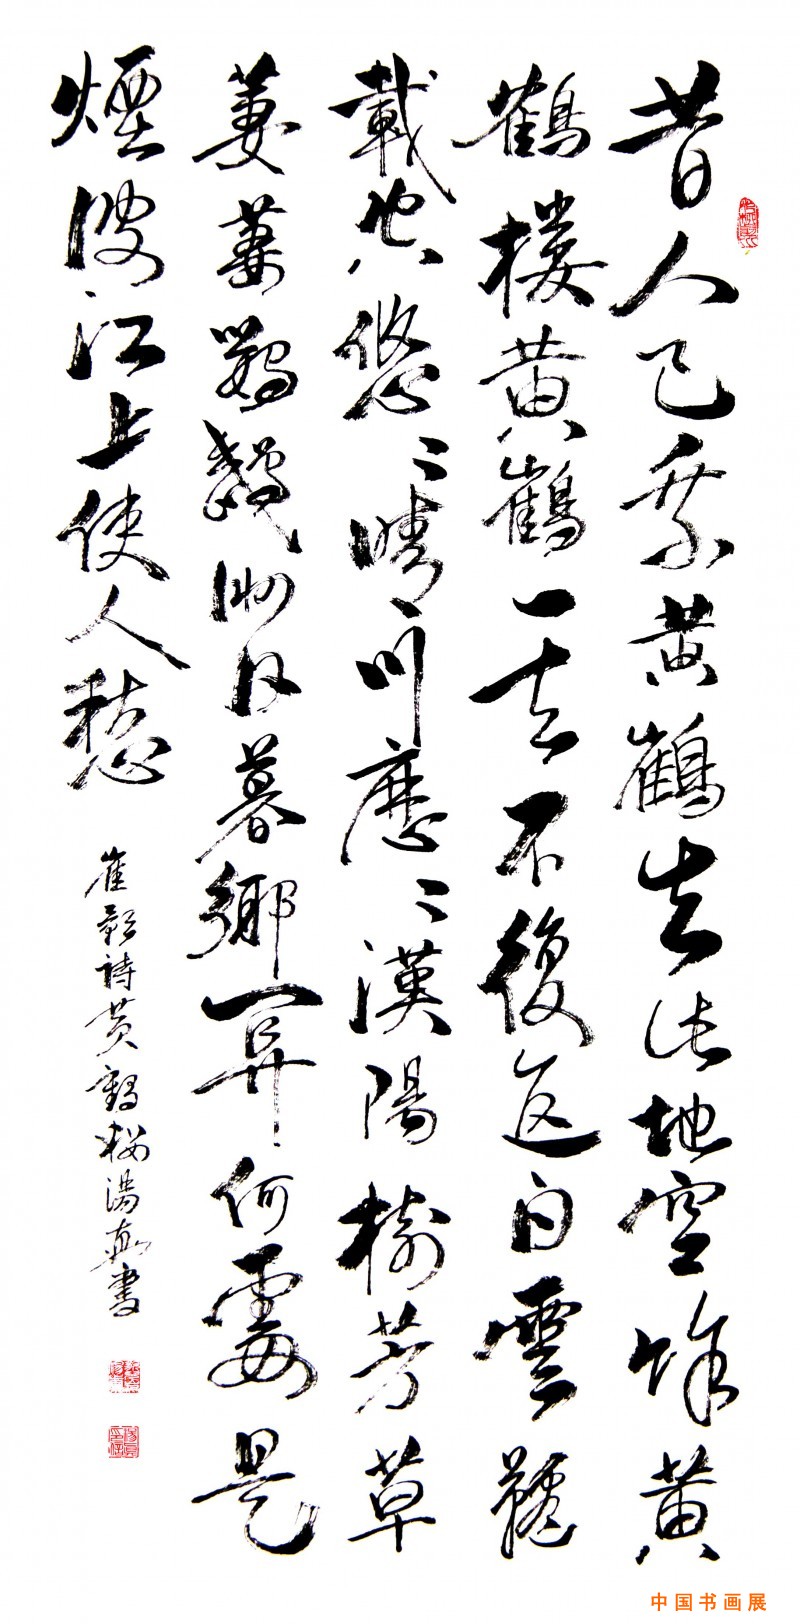 昔人已乘黄鶴去此地空餘黄
鶴樓黄鶴一去不復返白雲韆
載空悠〻晴川歷〻漢陽樹芳草
萋萋鸚鵡洲日暮鄉關何處是
煙波江上使人愁
崔顥詩黄鶴樓湯真書
中国书画展